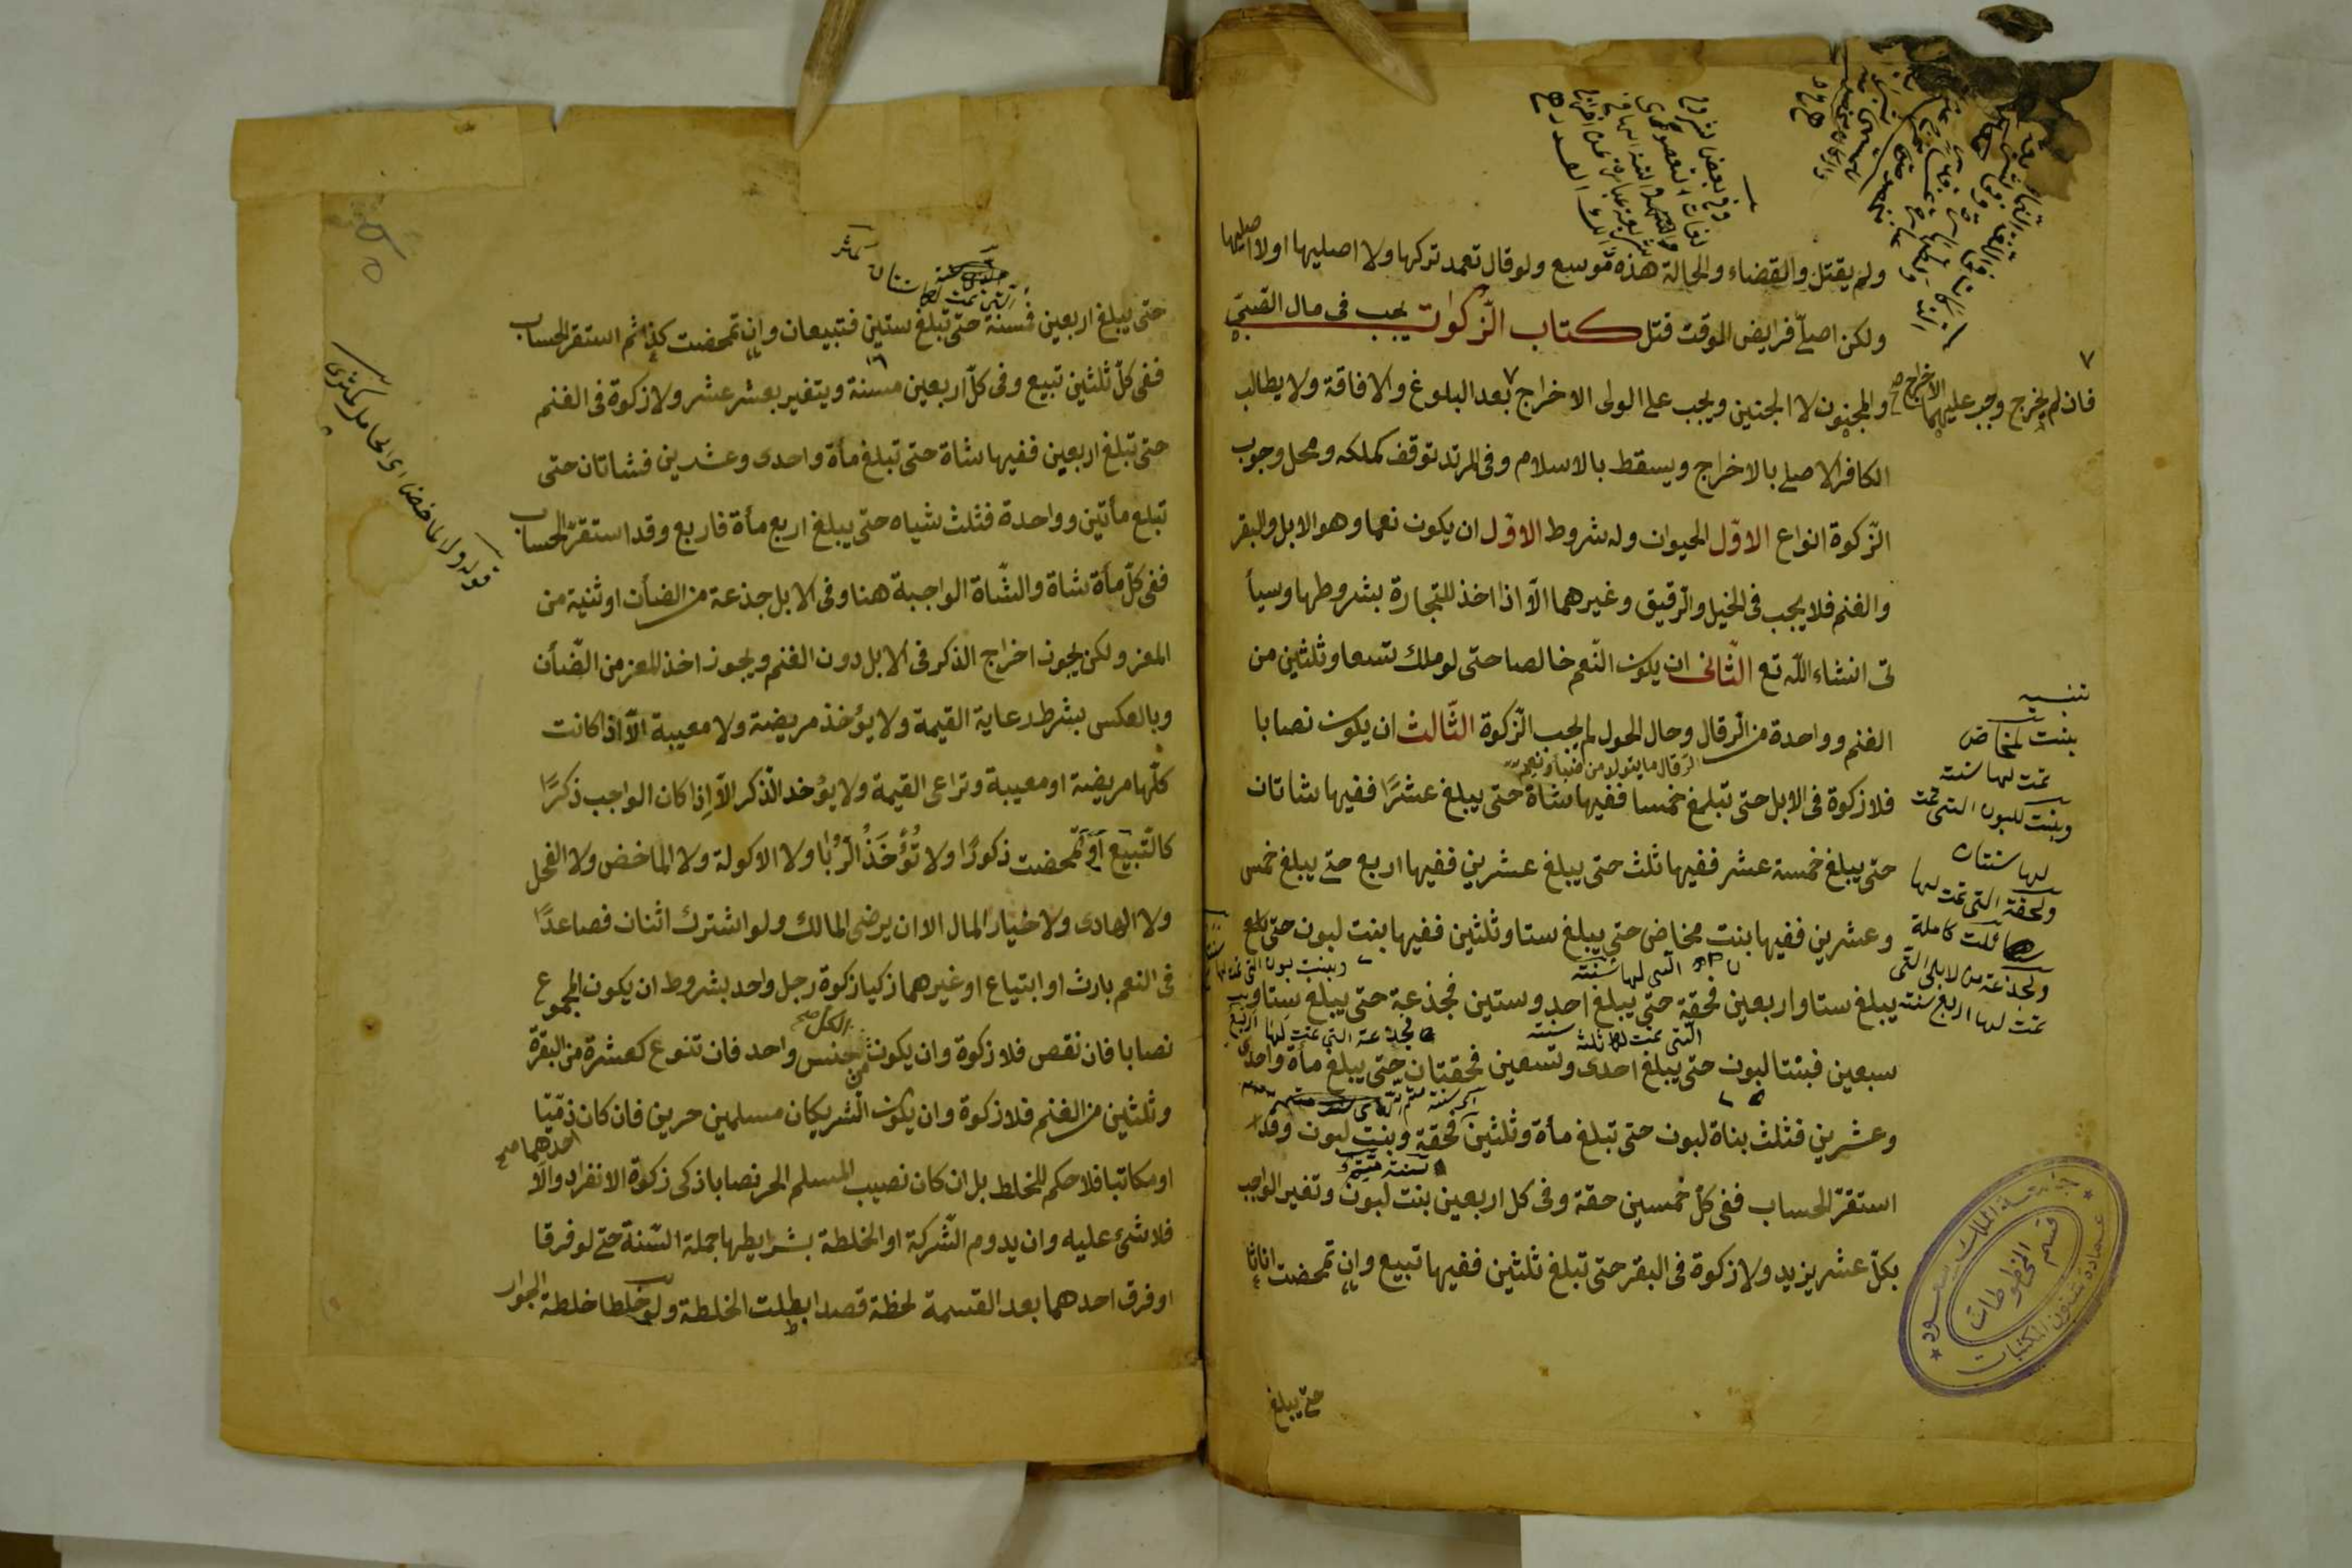 ولم يقتل والقضاء والحالة هذه موسع ولو قال تعمد تركها ولا اصليها او لا اصليها
ولكن اصلي فرايض الموقت قتل كتاب الزكوات يجب في مال الصبي
والمجنون لا الجنين ويجب على الولى الاخراج بعد البلوغ والافاقة ولا يطالب
فان لم يخرج وجب عليهما الاخراج صح
الكافر الاصلي بالاخراج ويسقط بالاسلام وفى المرتد توقف كملكه ومحل وجوب
الزكوة انواع الاول الحيوان وله شروط الاول ان يكون نعما وهو الابل والبقر
والغنم فلا يجب فى الخيل والرقيق وغيرهما الا اذا اخذ للتجارة بشروطها وسيأ
تى انشاء الله تع الثانى ان يكون النعم خالصا حتى لو ملك تسعا وثلثين من
الغنم وواحدة من الرقال وحال الحول لم يجب الزكوة الثالث ان يكون نصابا
فلا زكوة فى الابل حتى تبلغ خمسا ففيها شاة حتى يبلغ عشرا ففيها شاتان
حتى يبلغ خمسة عشر ففيها ثلث حتى يبلغ عشرين ففيها اربع حتى يبلغ خمس
وعشرين ففيها بنت مخاض حتى يبلغ ستا وثلثين ففيها بنت لبون حتى
يبلغ ستا واربعين فحقة حتى يبلغ احد وستين فجذعة حتى يبلغ ستا و
سبعين فبنتا لبون حتى يبلغ احدى وتسعين فحقتان حتى يبلغ مأة واحدى
وعشرين فثلث بناة لبون حتى تبلغ مأة وثلثين فحقة وبنت لبون وقد
استقر الحساب ففى كل خمسين حقة وفى كل اربعين بنت لبون وتغير الواجب
بكل عشر يزيد ولا زكوة فى البقر حتى تبلغ ثلثين ففيها تبيع وان تمحضت اناثا
حتى يبلغ
تنبيه
بنت مخاض
تمت لها سنة
وبنت للبون التى تمت
لها سنتان
ولحقة التى تمت لها
ثلث كاملة
ولجذعة من الابل التى
تمت لها اربع سنة
جامعة الملك سعود
قسم المخطوطات
عمادة شئون المكتبات
حتى يبلغ اربعين فمسنة حتى تبلغ ستين فتبيعان وان تمحضت كذا ثم استقر الحساب
ففى كل ثلثين تبيع وفى كل اربعين مسنة ويتغير بعشر عشر ولا زكوة فى الغنم
حتى تبلغ اربعين ففيها شاة حتى تبلغ مأة واحدى وعشرين فشاتان حتى
تبلغ مأتين وواحدة فثلث شياه حتى يبلغ اربع مأة فاربع وقد استقر الحساب
ففى كل مأة شاة والشاة الواجبة هنا وفى الابل جذعة من الضأن او ثنية من
المعز ولكن يجوز اخراج الذكر فى الابل دون الغنم ويجوز اخذ المعز من الضأن
وبالعكس بشرط رعاية القيمة ولا يؤخذ مريضة ولا معيبة الا اذا كانت
كلها مريضة او معيبة وتراعى القيمة ولا يؤخد الذكر الا اذا كان الواجب ذكرًا
كالتبيع أو تمحضت ذكورًا ولا تُؤخَذُ الرُبا ولا الاكولة ولا الماخض ولا الفحل
ولا الهادى ولا خيار المال الا ان يرضى المالك ولو اشترك اثنان فصاعدًا
فى النعم بارث او ابتياع او غيرهما زكيا زكوة رجل واحد بشروط ان يكون المجموع
نصابا فان نقص فلا زكوة وان يكون الكل من جنس واحد فان تنوع كعشرة من البقرة
وثلثين من الغنم فلا زكوة وان يكون الشريكان مسلمين حرين فان كان احدهما ذميا
او مكاتبا فلا حكم للخلط بل ان كان نصيب المسلم الحر نصابا زكى زكوة الانفراد والا
فلا شئ عليه وان يدوم الشركة او الخلطة بشرايطها جملة السنة حتى لو فرقا
او فرق احدهما بعد القسمة لحظة قصدا بطلت الخلطة ولو خلطا خلطة الجوار
قوله ولا لماخض اى الحامل